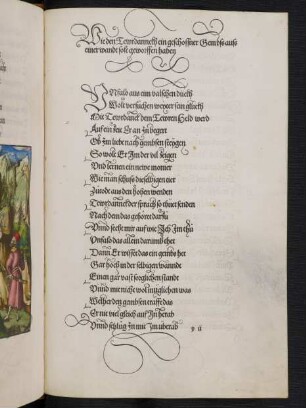 Wie den Tewrdannckh ein geschossner Gembs auß
einer wandt solt geworffen haben

Vnfalo aus eim valschen dueckh
Wolt versuchen weyter sein glückh
Mit Tewrdanck dem Tewren Held werd
Auf ein zeit Er an jn begert
Ob jm liebt nach gembsen steygen
So wolt Er Jm der vil zeigen
Vnd lernen ein newe monier
Wie man schuß dieselbigen tier
Zutodt aus den hohen wenden
Tewrdannckh der sprach so thuet senden
Nach dem das gehöret darzů
Vnnd secht mir auf wie Jch Jm thů
Vnfalo das allein darumb thet
Dann Er wisset das ein gembs het
Gar hoch in der selbigen wanndt
Einen gar vast sorglichen standt
Vnnd wer nicht wol müglichen was
Welher den gembsen trafft das
Er nit viel gleich auf Jn herab
Vnnd schlueg Jn mit Jm überab